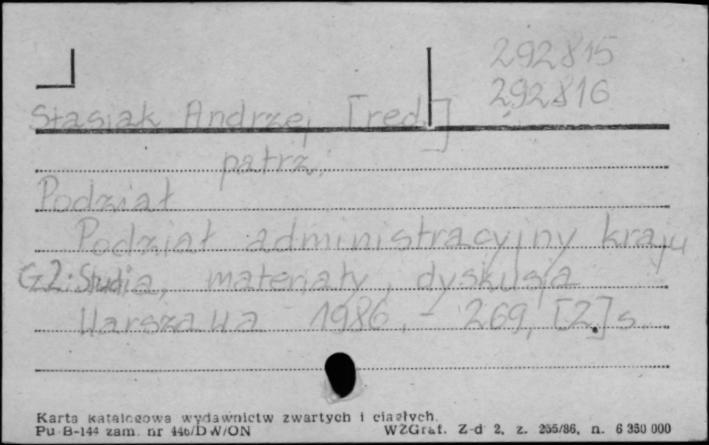 292815
292816
Stasiak Andrzej [red.]
patrz:
Podział
Podział administracyjny kraju
Cz 2: Studia, materiały, dyskusja
Warszawa 1986, - 269, [2] s.
Karta katalogowa wydawnictw zwartych i ciągłych.
Pu B-144 zam. nr 446/DW/ON WZGraf. Z-d 2, z. 255/86, n. 6 350 000